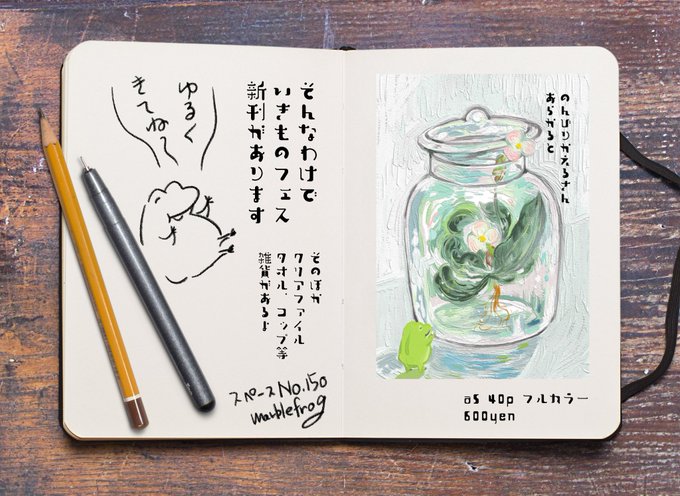 そんなわけで
いきものフェス
新刊があります
ゆるく
きてねー
そのほか
クリアファイル
タオル、コップ等
雑貨があるよ
スペースNo.150
marblefrog
のんびりかえるさん
あらかると
a5 40p フルカラー
600yen